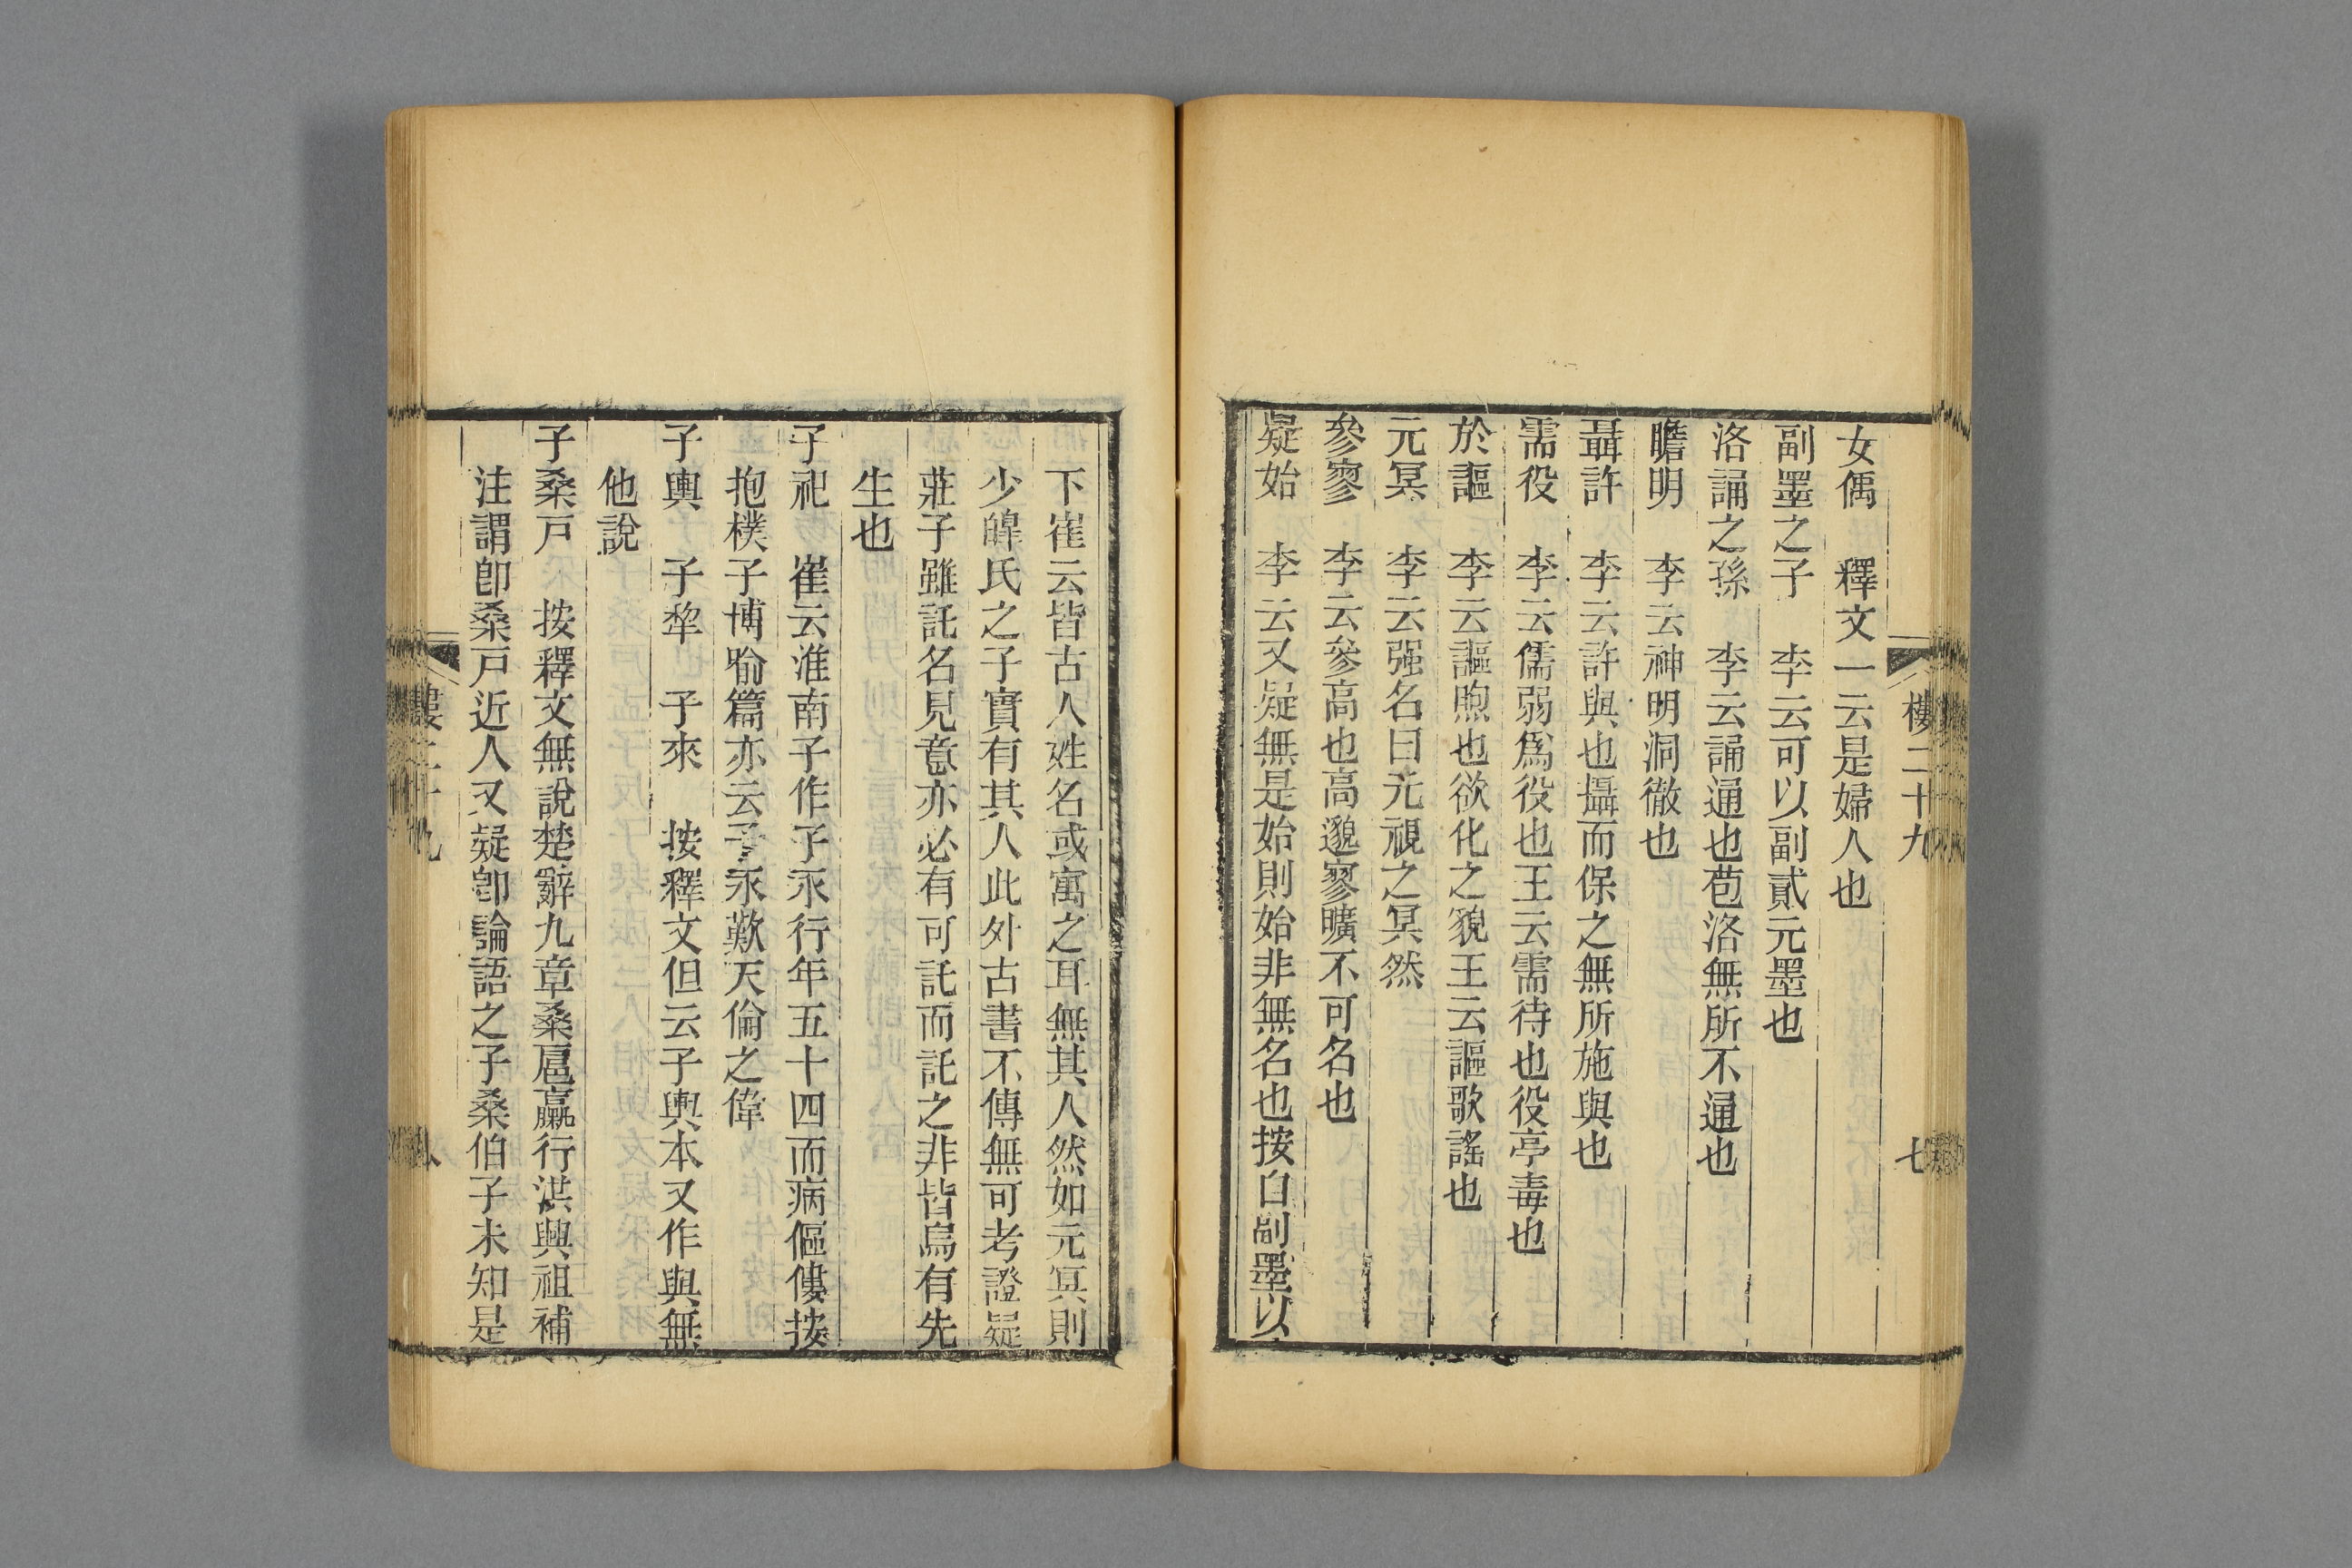 女偊　釋文一云是婦人也
副墨之子　李云可以副貳元墨也
洛誦之孫　李云誦通也苞洛無所不通也
瞻明　李云神明洞徹也
聶許　李云許與也攝而保之無所施與也
需役　李云儒弱爲役也王云需待也役亭毒也
於謳　李云謳煦也欲化之貌王云謳歌謠也
元冥　李云强名曰元視之冥然
參寥　李云參高也高邈寥曠不可名也
疑始　李云又疑無是始則始非無名也按自副墨以
樓二十九
七
下崔云皆古人姓名或寓之耳無其人然如元冥則
少皥氏之子實有其人此外古書不傳無可考證疑
莊子雖託名見意亦必有可託而託之非皆烏有先
生也
子祀　崔云淮南子作子永行年五十四而病傴僂按
抱樸子博喻篇亦云子永歎天倫之偉
子輿　子犂　子來　按釋文但云子輿本又作與無
他說
子桑戸　按釋文無說楚辭九章桑扈臝行洪興祖補
注謂卽桑戸近人又疑卽論語之子桑伯子未知是
樓二十九
八